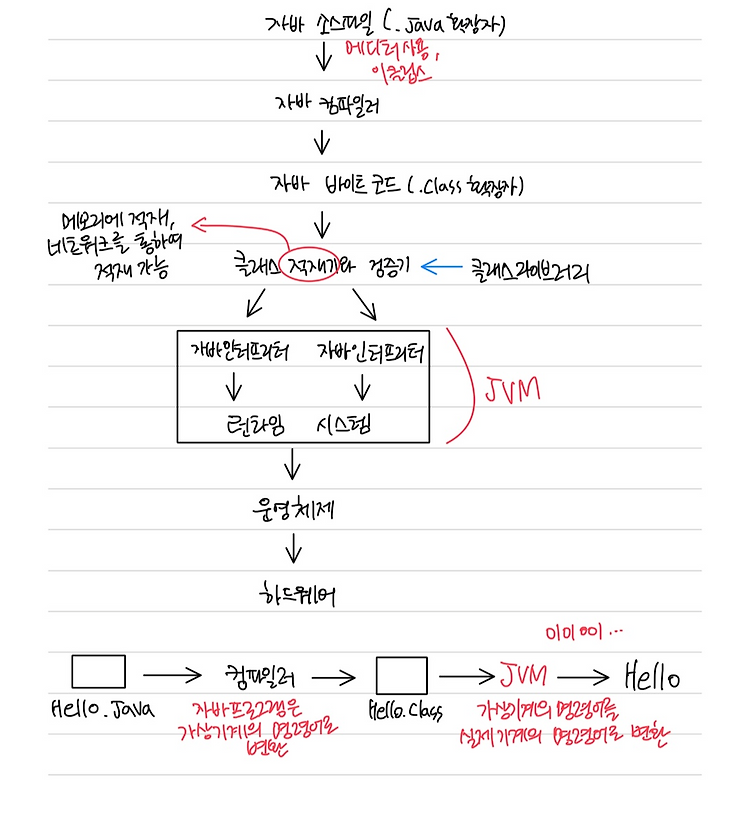 자바 소스파일 (.java 확장자)
에디터사용,
이클립스
자바 컴파일러
자바 바이트 코드 (.class 확장자)
메모리에 적재,
네트워크를 통하여
적재 가능
클래스 적재기와 검증기
클래스라이브러리
자바인터프리터 자바인터프리터
런타임 시스템
JVM
운영체제
하드웨어
Hello.Java
컴파일러
자바프로그램은
가상기계의 명령어로
변환
Hello.class
JVM
가상기계의 명령어를
실제기계의 명령어로 변환
Hello